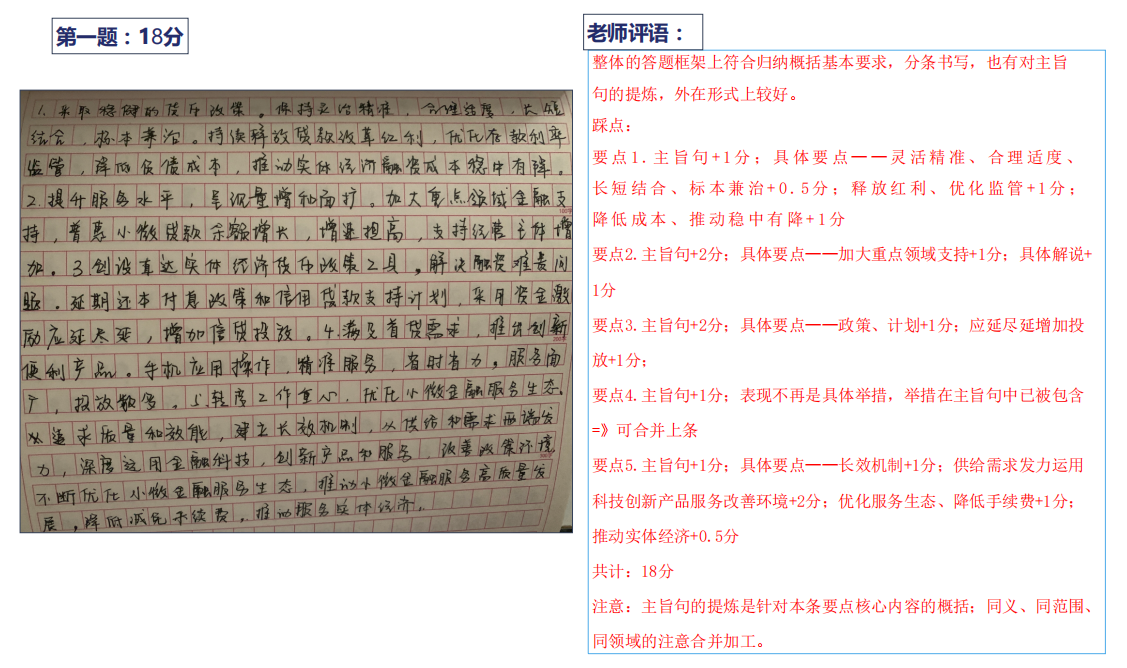 第一题：18分
1.采取稳健的货币政策。保持灵活精准、合理适度、长短
结合，标本兼治。持续释放贷款改革红利，优化存款利率
监管，降低负债成本，推动实体经济融资成本稳中有降。
2.提升服务水平，呈现量增和面扩。加大重点领域金融支
持，普惠小微贷款余额增长，增进担高，支持经营主体增
加。3.创设直达实体经济货币政策工具，解决融资难贵问
题。延期还本付息政策和信用贷款支持计划，采用资金激
励应延尽延，增加信贷投放。4.满足首贷需求，推出创新
便利产品。手机应用操作，精准服务，省时省力。服务面
广，投放额多。5.转变工作重心，优化小微金融服务生态。
从追求质量和效能，建立长效机制，从供给和需求两端发
力，深度运用金融科技，创新产品和服务，改善政策环境
不断优化小微金融服务生态，推动小微金融服务高质量发
展，降低减免手续费，推动服务实体经济。
100字
200字
300字
老师评语：
整体的答题框架上符合归纳概括基本要求，分条书写，也有对主旨
句的提炼，外在形式上较好。
踩点：
要点1.主旨句+1分；具体要点——灵活精准、合理适度、
长短结合、标本兼治+0.5分；释放红利、优化监管+1分；
降低成本、推动稳中有降+1分
要点2.主旨句+2分；具体要点——加大重点领域支持+1分；具体解说+
1分
要点3.主旨句+2分；具体要点——政策、计划+1分；应延尽延增加投
放+1分；
要点4.主旨句+1分；表现不再是具体举措，举措在主旨句中已被包含
=》可合并上条
要点5.主旨句+1分；具体要点——长效机制+1分；供给需求发力运用
科技创新产品服务改善环境+2分；优化服务生态、降低手续费+1分；
推动实体经济+0.5分
共计：18分
注意：主旨句的提炼是针对本条要点核心内容的概括；同义、同范围、
同领域的注意合并加工。